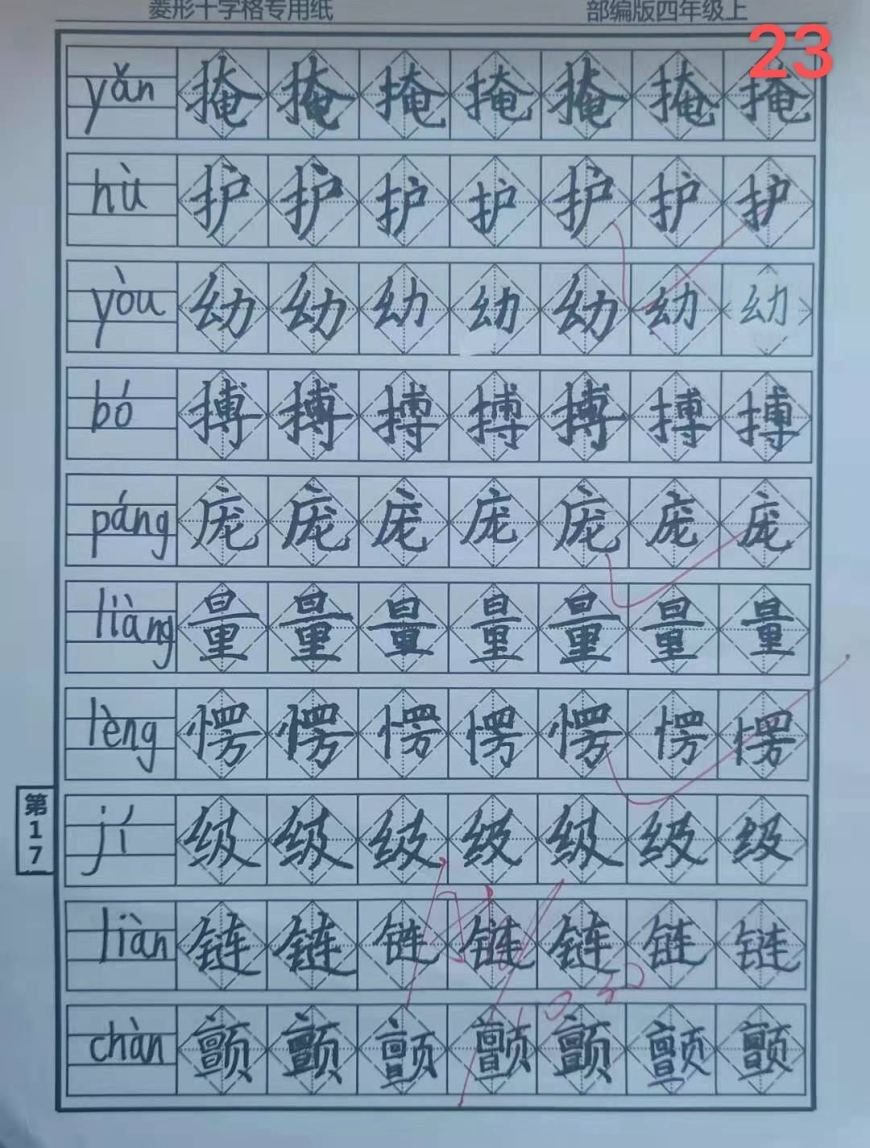 菱形十字格专用纸 部编版四年级上
23
yǎn 掩 掩 掩 掩 掩 掩 掩
hù 护 护 护 护 护 护 护
yòu 幼 幼 幼 幼 幼 幼 幼
bó 搏 搏 搏 搏 搏 搏 搏
páng 庞 庞 庞 庞 庞 庞 庞
liàng 量 量 量 量 量 量 量
lèng 愣 愣 愣 愣 愣 愣 愣
第17
jí 级 级 级 级 级 级 级
liàn 链 链 链 链 链 链 链
chàn 颤 颤 颤 颤 颤 颤 颤